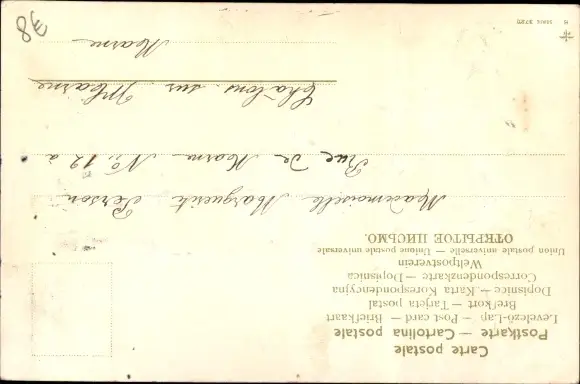 Carte postale
Postkarte — Cartolina postale
Levelező-Lap — Post card — Briefkaart
Brefkort — Tarjeta postal
Dopisnice — Karta Korespondencyjna
Correspondenzkarte — Dopisnica
Weltpostverein
Union postale universelle — Unione postale universale
ОТКРЫТОЕ ПИСЬМО.
Mademoiselle Marguerite Person
Rue de Marne No. 12 a
Châlons sur Marne
Marne